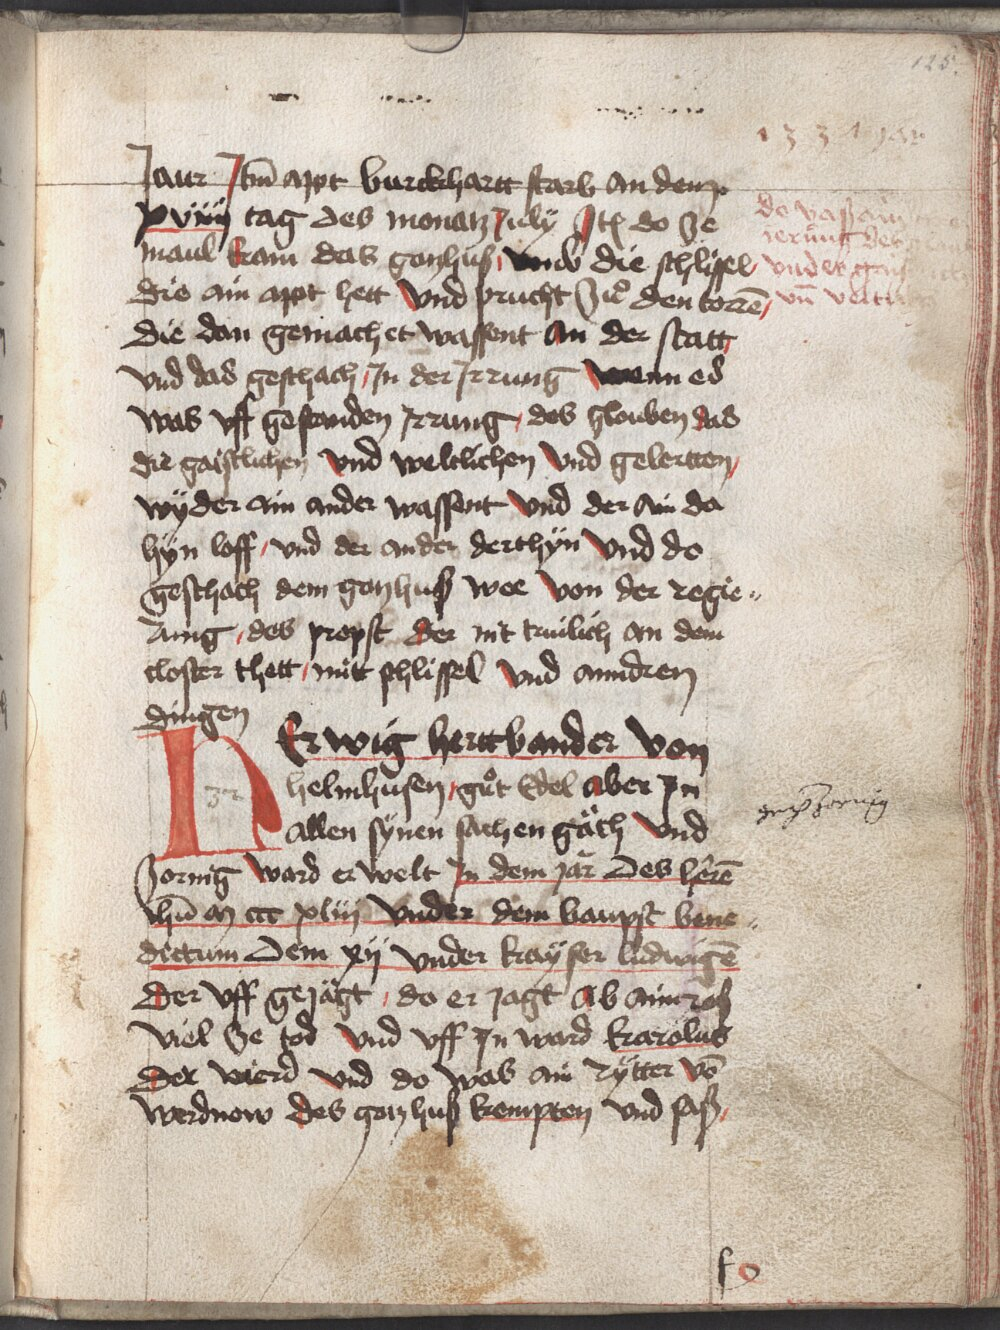 125.
1331 jar
Jaur Jtm appt burckhartt starb an dem
xviiij tag des monatz July Jtem do ze
maul kam das gotzhus vmb die schlissel
die ain appt hett Vnd prucht Zuͦ den torrē
die dan gemachet wassent An der statt
vnd das geschach Jn der Jrrung wenn es
was vff gestanden Jrrung des glouben das
die gaistlichen Vnd weltlichen Vnd gelertten
wÿder ain ander wassent Vnd der Ain da
hÿn loff vnd der ander derthÿn Vnd do
geschach dem gotzhus wee Von der regie
rung des propst der nit trulich an dem
closter thett mitt schlissel Vnd anndren
dingen
do was ain
jerung der
vnd er gais
vn̄ welt
HErwig herttbander von
32
helmhusen guͦt Edel aber Jn
allen sÿnen sachen gäch Vnd
Zornig ward erwelt Jn dem jar Des herrē
thū m ccc xliij Vnder dem baupst bene
dictum Dem xij vnder kayser ludwigē
Der vff gejägt do er jagt Ab aim roß
viel Ze tod Vnd vff Jn ward karolus
Der vierd Vnd do was ain rÿtter vō
werdnow des gotzhus kempten Vnd saß
gech zornig
f 9